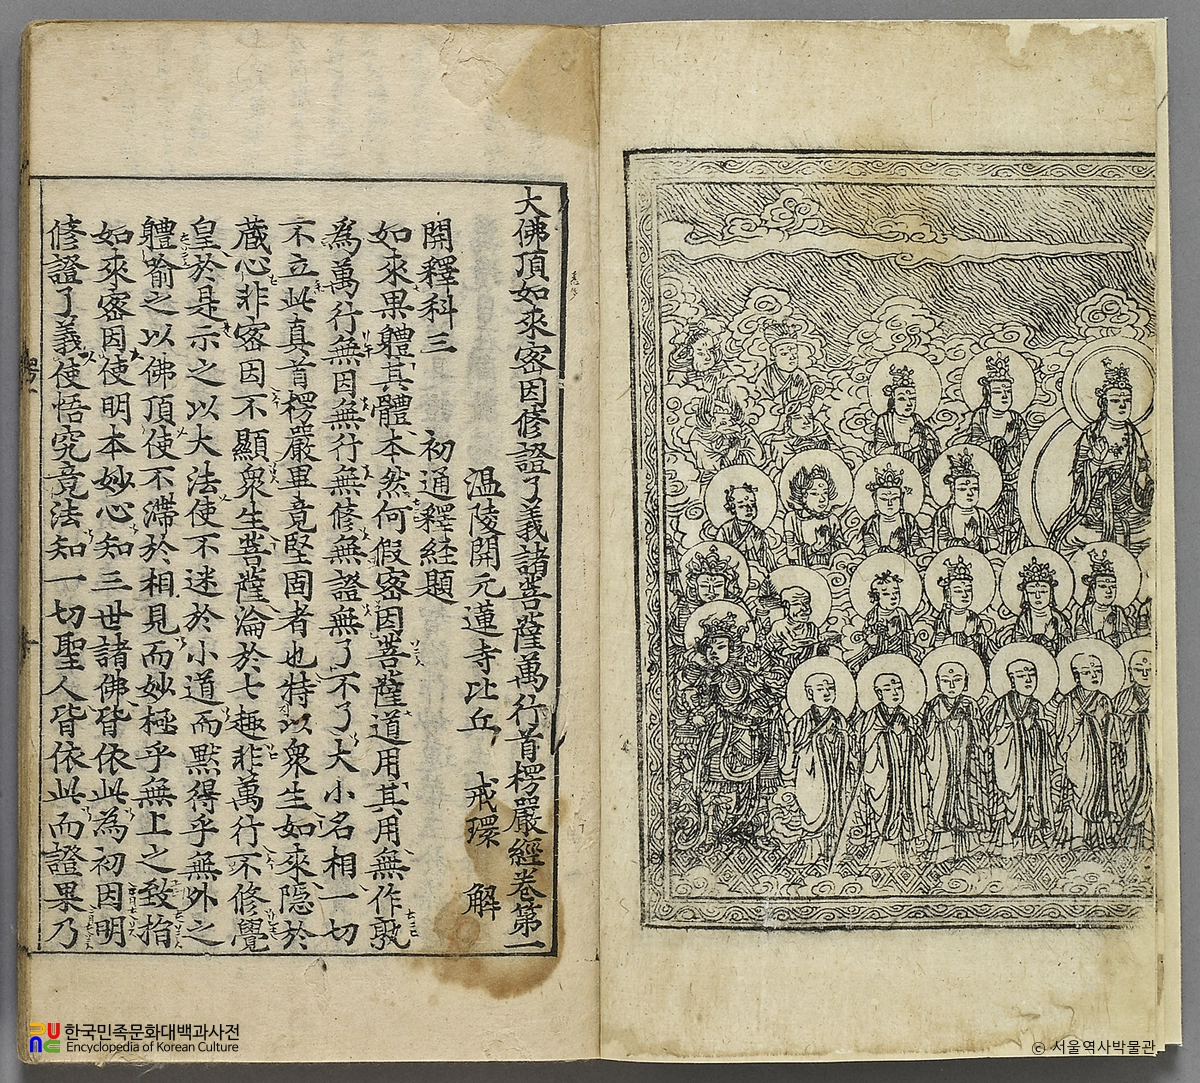 大佛頂如來密因修證了義諸菩薩萬行首楞嚴經卷第一
温陵開元蓮寺比丘 戒環 解
開釋科三 初通釋経題
如來果體其體本然何假密因菩薩道用其用無作孰
為萬行無因無行無修無證無了不了大小名相一切
不立此真首楞嚴畢竟堅固者也特以衆生如來隱於
蔵心非密因不顯衆生菩薩淪於七趣非萬行不修覺
皇於是示之以大法使不迷於小道而默得乎無外之
體喻之以佛頂使不滯於相見而妙極乎無上之致指
如來密因使明本妙心知三世諸佛皆依此為初因明
修證了義使悟究竟法知一切聖人皆依此而證果乃
楞一
한국민족문화대백과사전
Encyclopedia of Korean Culture
© 서울역사박물관